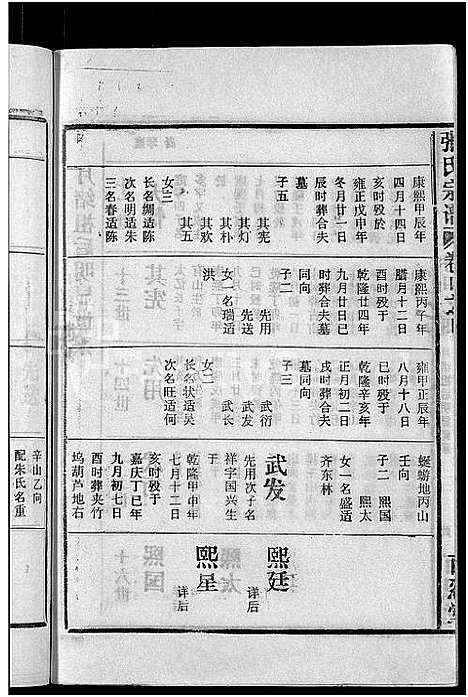 張氏宗譜
康熙甲辰年
四月十四日
亥时歿于
雍正戊申年
冬月廿一日
辰时葬合夫
墓
子五
其宪
其灯
其朴
其欢
其五
女三
长名绸适陈
次名明适朱
三名春适陈
康熙丙子年
腊月十二日
酉时歿于
乾隆廿四年
九月廿日巳
时葬合夫墓
同向
子二
先用
先送
女一名瑞适
洪
雍甲正辰年
八月十八日
巳时歿于
乾隆辛亥年
正月初二日
戌时葬合夫
墓同向
子三
武衍
武发
武长
女二
长名状适吴
次名旺适何
蜒蝣地丙山
壬向
子二
熙国
熙太
女一名盛适
齐东林
武发
先用次子名
祥字国兴生
于
乾隆甲申年
七月十二日
亥时歿于
嘉庆丁巳年
九月初七日
酉时葬夹竹
坞葫芦地右
辛山乙向
配朱氏名重
熙廷
详后
熙星
详后